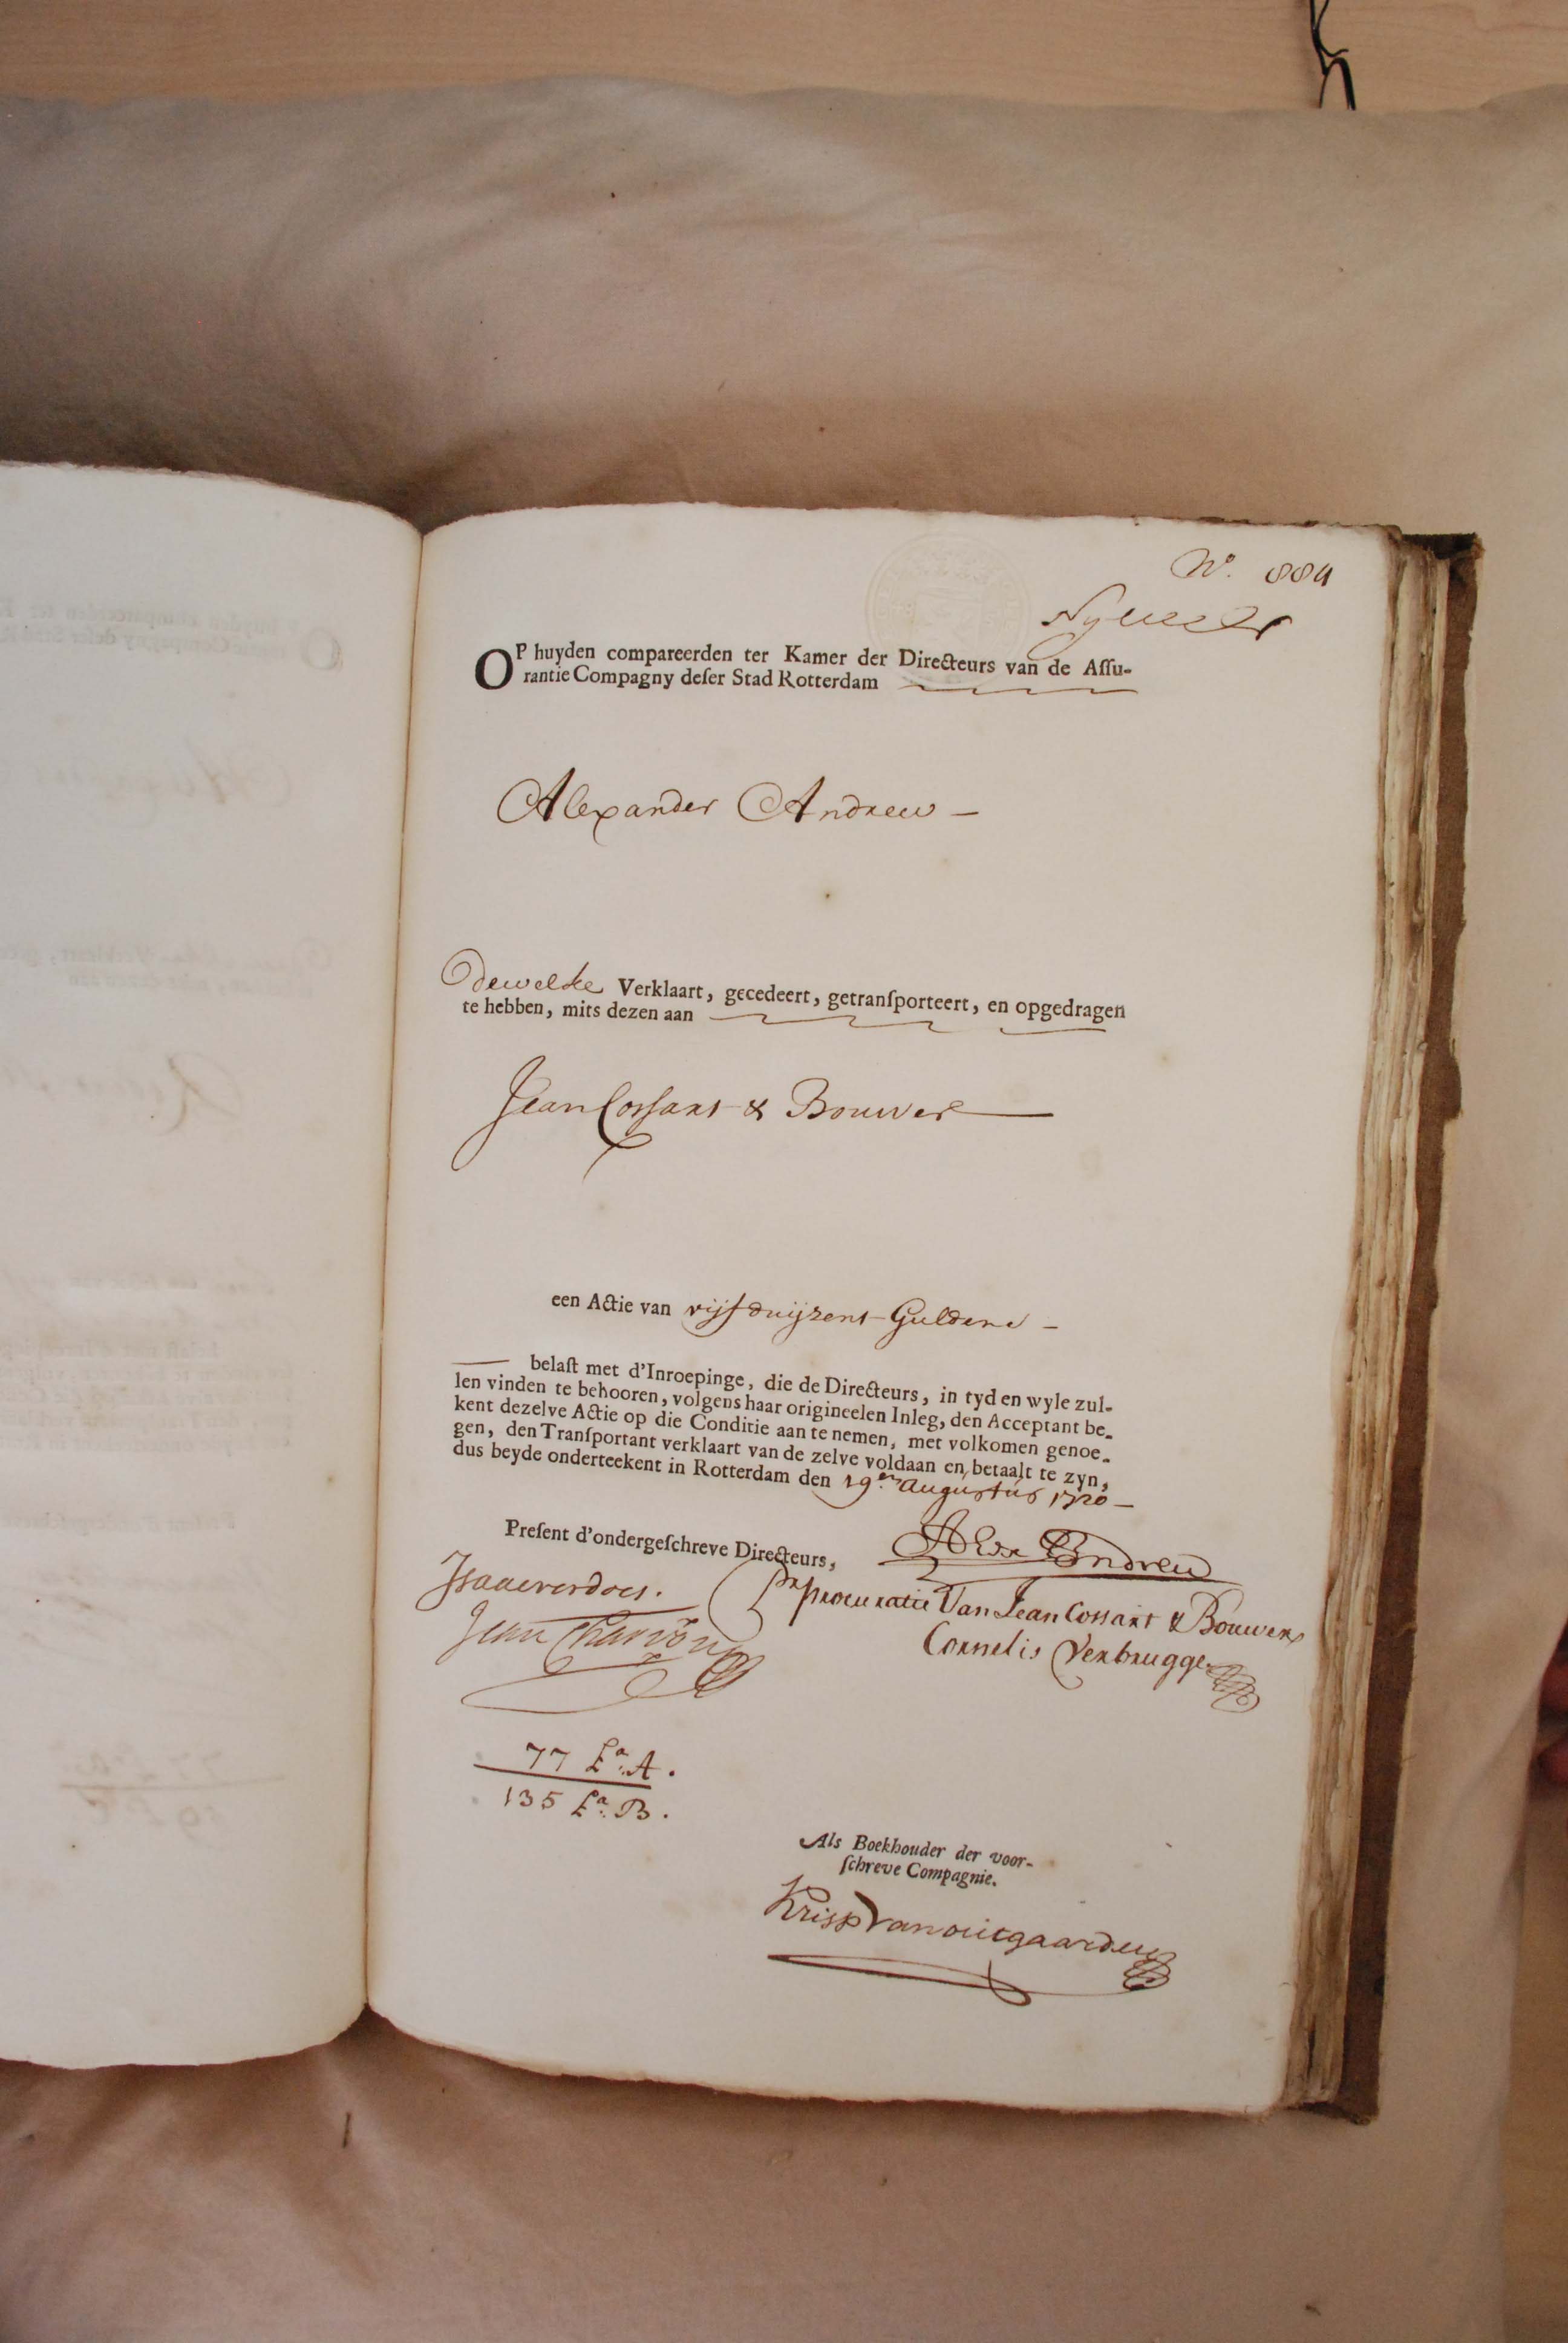 N.º 884
OP huyden compareerden ter Kamer der Directeurs van de Aſſu-
rantie Compagny deſer Stad Rotterdam
Alexander Andrew —
Dewelke Verklaart, gecedeert, getranſporteert, en opgedragen
te hebben, mits dezen aan
Jean Cossart & Bouwer
een Actie van vijfduijzent Guldens —
belaſt met d'Inroepinge, die de Directeurs, in tyd en wyle zul-
len vinden te behooren, volgens haar origineelen Inleg, den Acceptant be-
kent dezelve Actie op die Conditie aan te nemen, met volkomen genoe-
gen, den Tranſportant verklaart van de zelve voldaan en betaalt te zyn,
dus beyde onderteekent in Rotterdam den 19en augustus 1720 —
Preſent d'ondergeſchreve Directeurs,
Alexr Andrew
Isaac verdoes.
pr procuratie Van Jean Cossart & Bouwer
Jean Charron
Cornelis Verbrugge
77 La. A.
135 La. B.
Als Boekhouder der voor-
ſchreve Compagnie.
Kriſp Van outgaarden